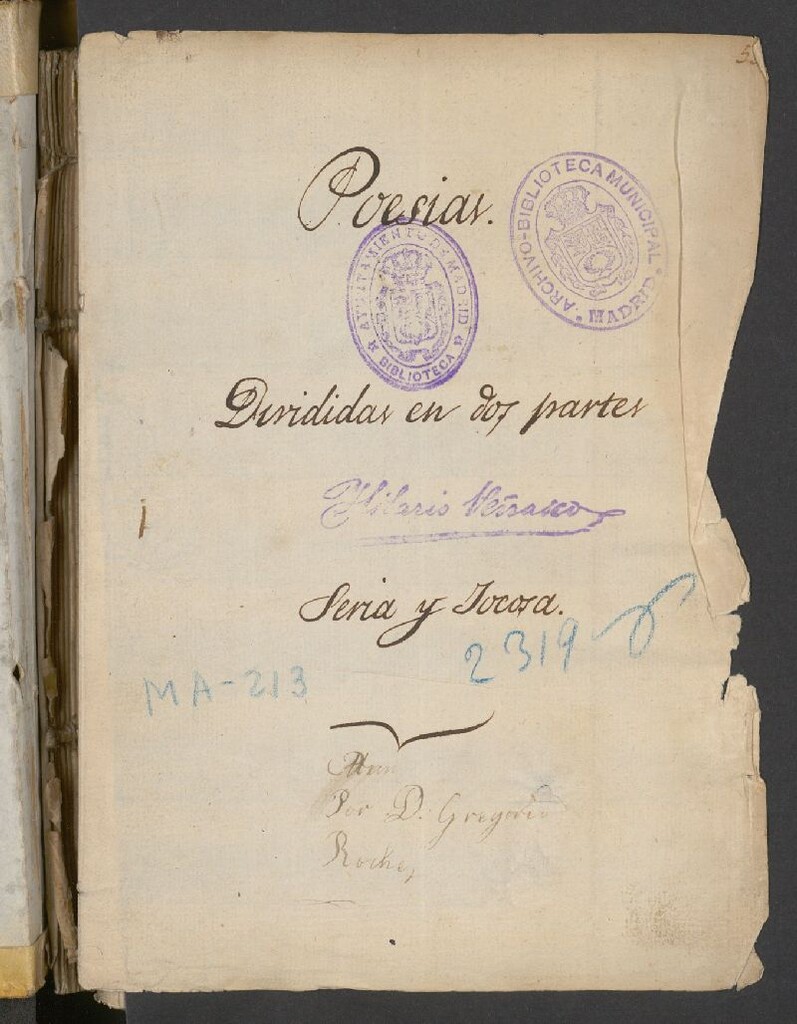 Poesias.
ARCHIVO-BIBLIOTECA MUNICIPAL * MADRID *
AYUNTAMIENTO DE MADRID
BIBLIOTECA
Divididas en dos partes
Hilario
Seria y Jocosa.
2319
MA-213
Por D. Gregorio